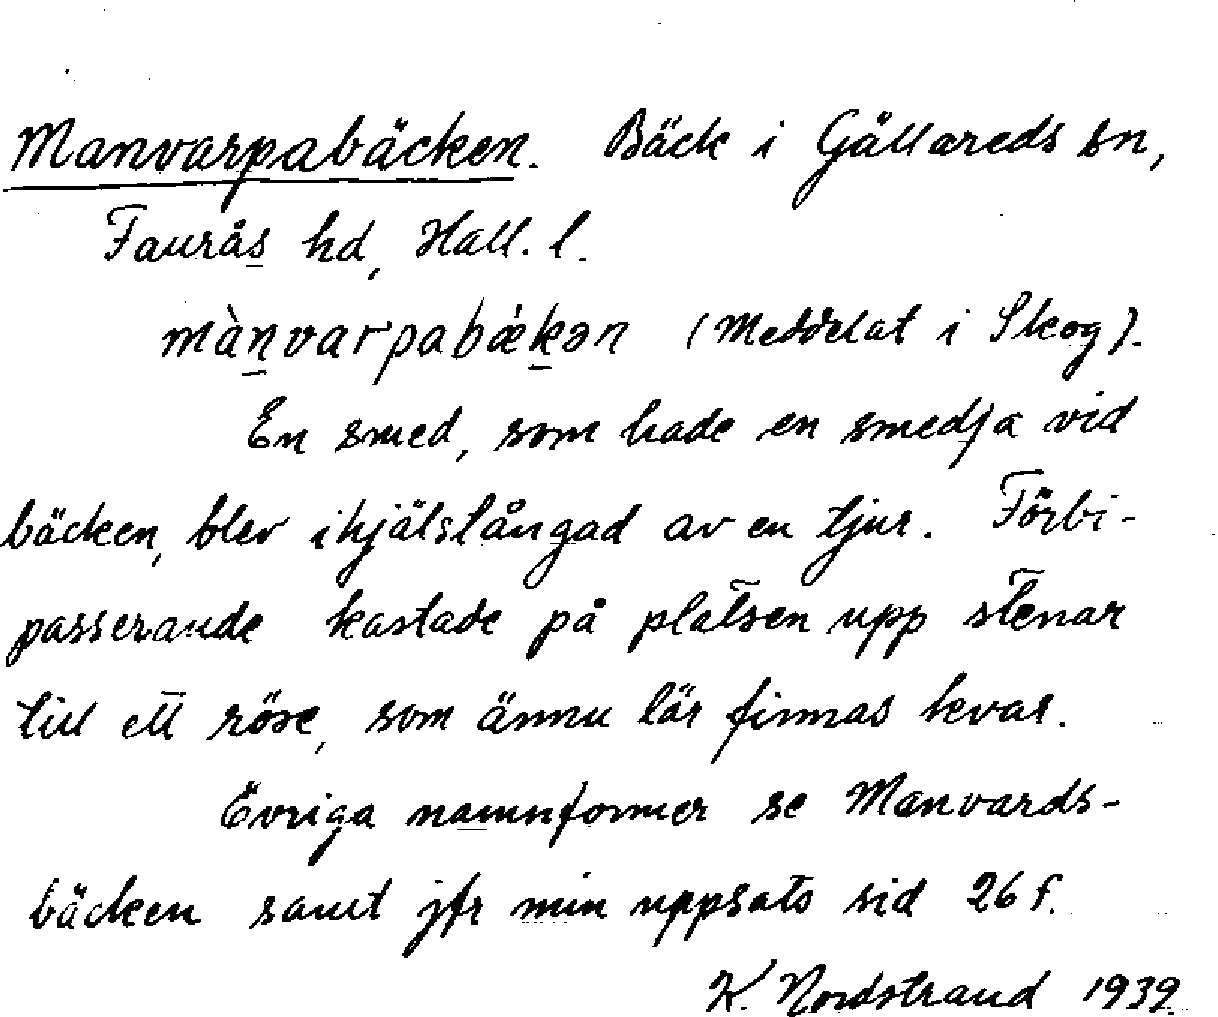 Manvarpabäcken. Bäck i Gällareds sn,
Faurås hd, Hall. l.
mànvarpabǽkən (Meddelat i Skog).
En smed, som hade en smedja vid
bäcken, blev ihjälstångad av en tjur. Förbi-
passerande kastade på platsen upp stenar
till ett röse, som ännu lär finnas kvar.
Övriga namnformer se Manvards-
bäcken samt jfr min uppsats sid 26 f.
K. Nordstrand 1939.